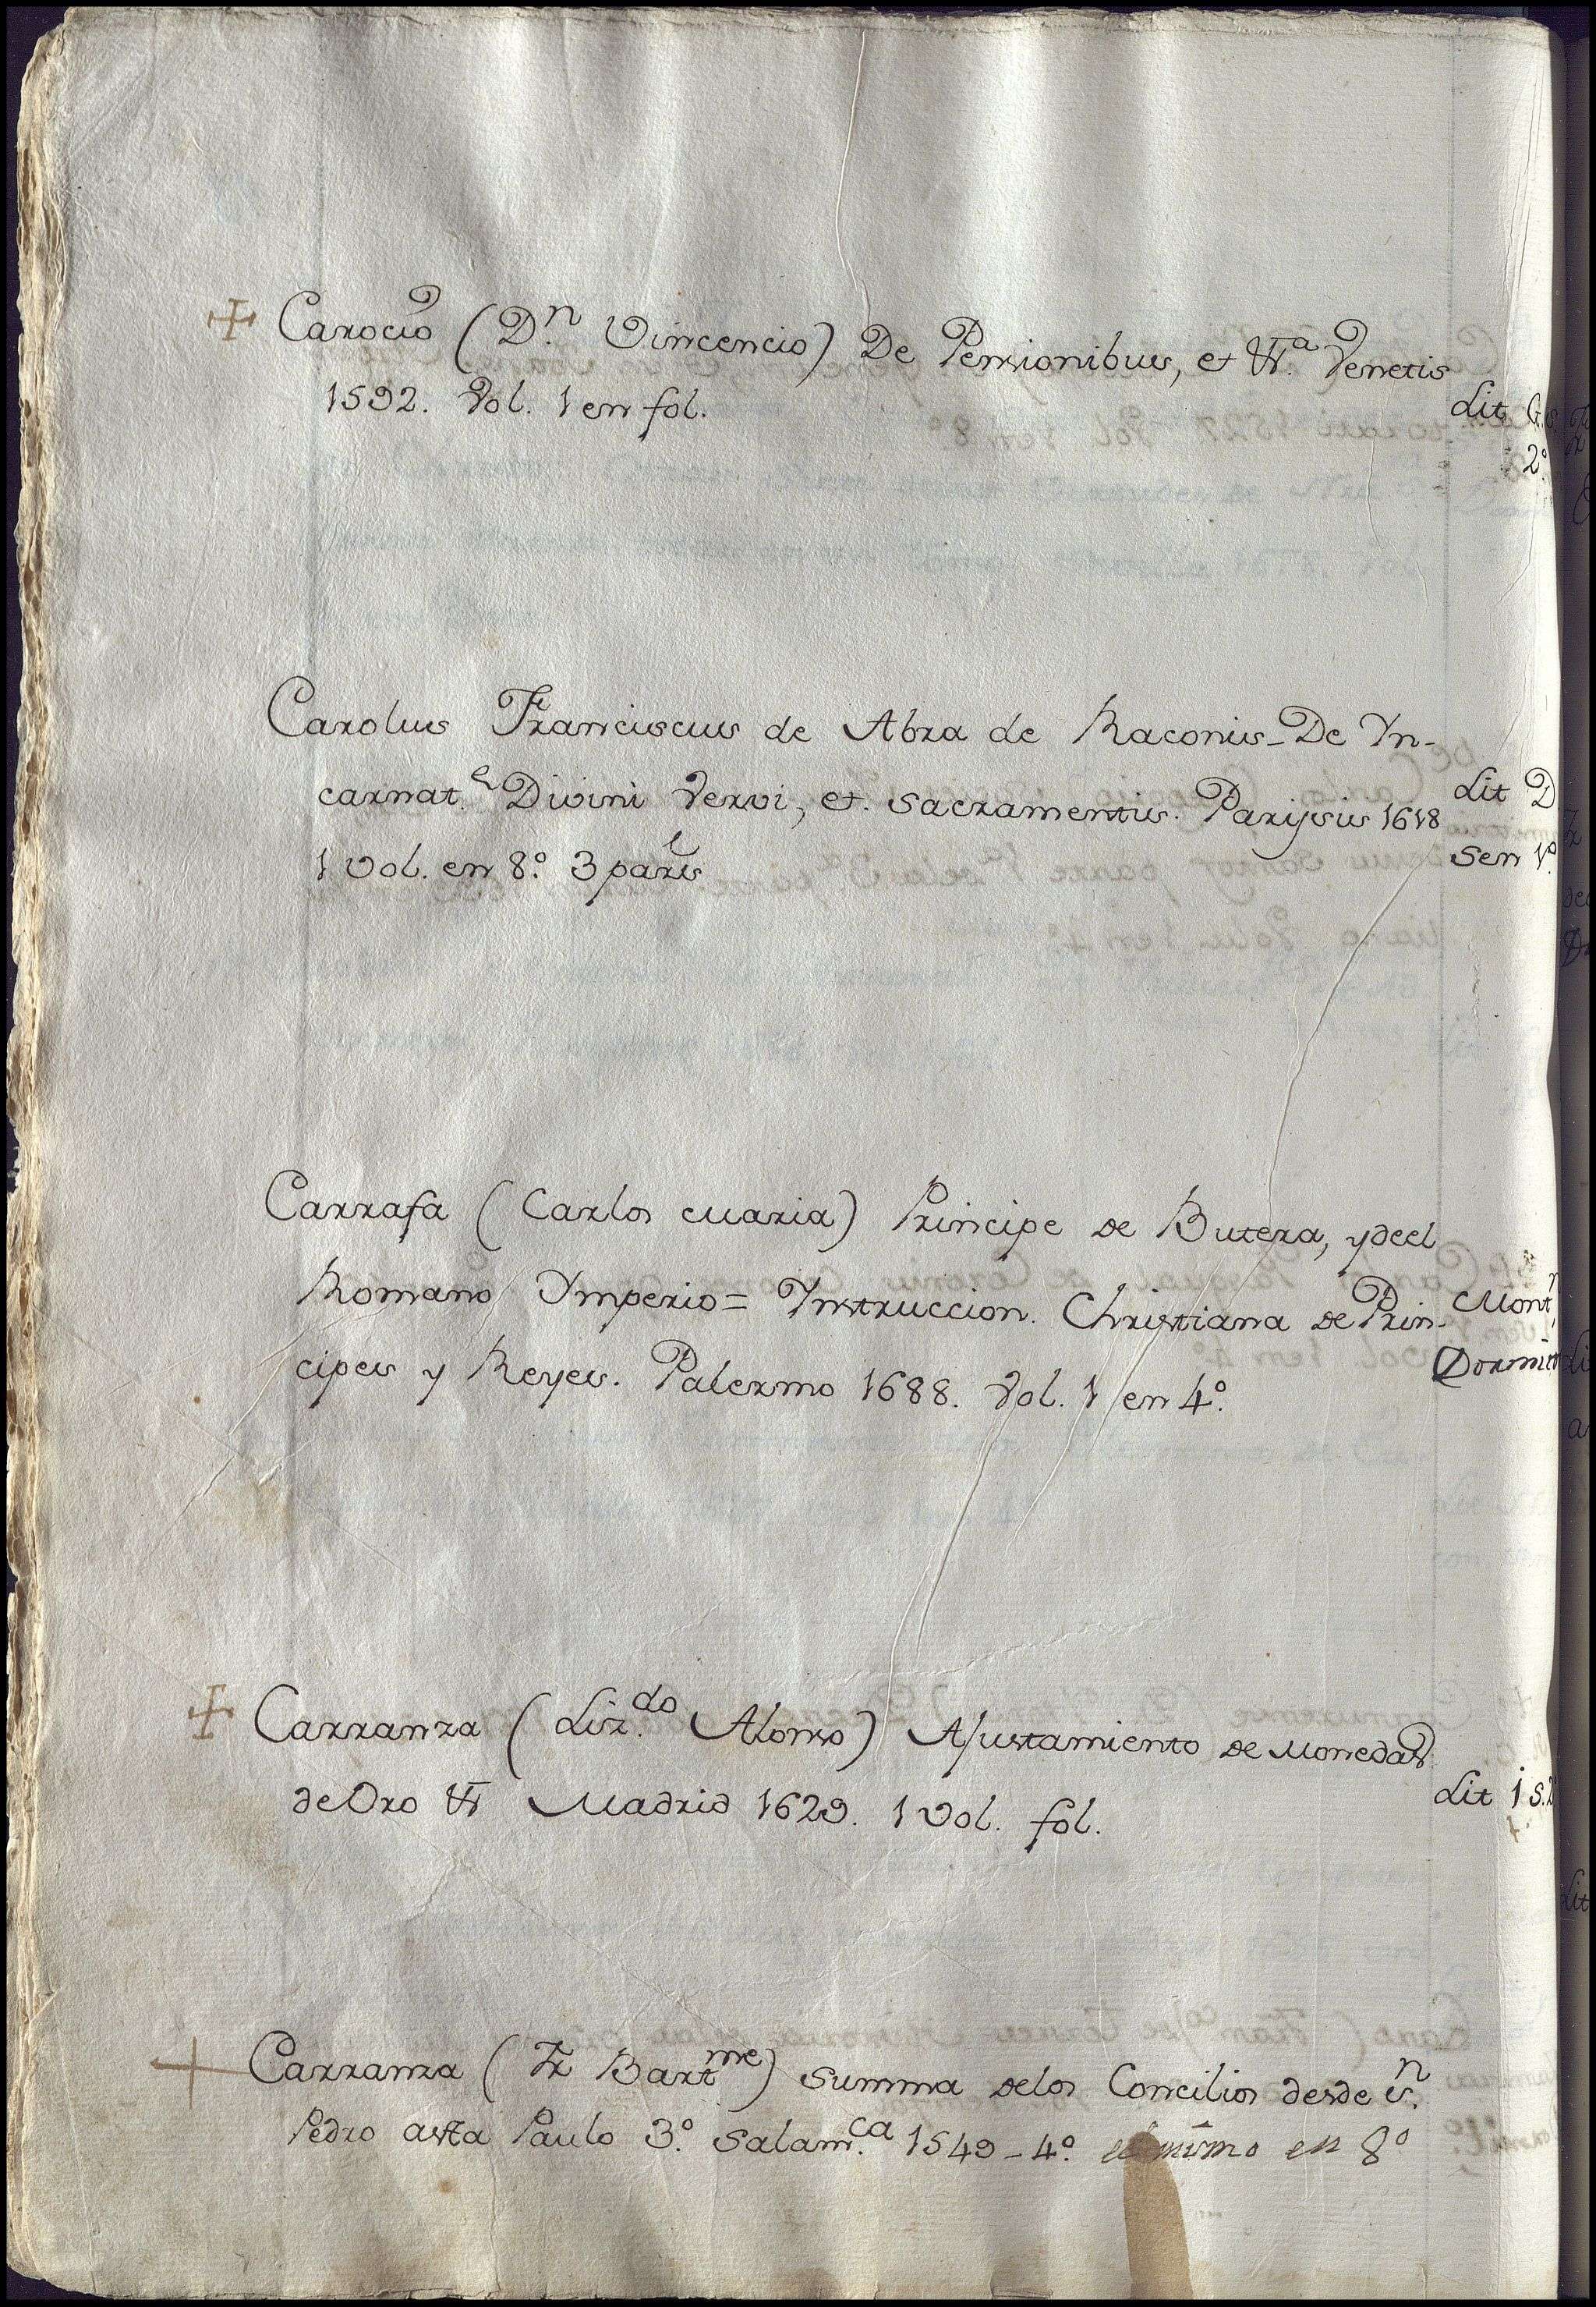 ✠ Carocio (D.n Vincencio) De Pensionibus, et tt.a Venetis
1592. Vol. 1 en fol.
Lit G. s.
2.º
Carolus Franciscus de Abra de Raconis_De Yn-
carnat.e Divini Vervi, et. sacramentis. Parijsis 1618
Lit D
1 Vol. en 8.º 3 parts
sen 1.º
Carrafa (Carlos Maria) Principe de Butera, y deel
Romano Ymperio= Ynstruccion. Christiana de Prin-
Mont.n
cipes y Reyes. Palermo 1688. Vol. 1 en 4.º
Dormit
✠ Carranza (Liz.do Alonso) Ajustamiento de Monedas
de Oro tt Madrid 1629. 1 Vol. fol.
Lit j s.2
+ Carranza (Fr Bartme) summa delos Concilios desde s.n
Pedro asta Paulo 3.º Salam.ca 1549_4.º el mismo en 8º